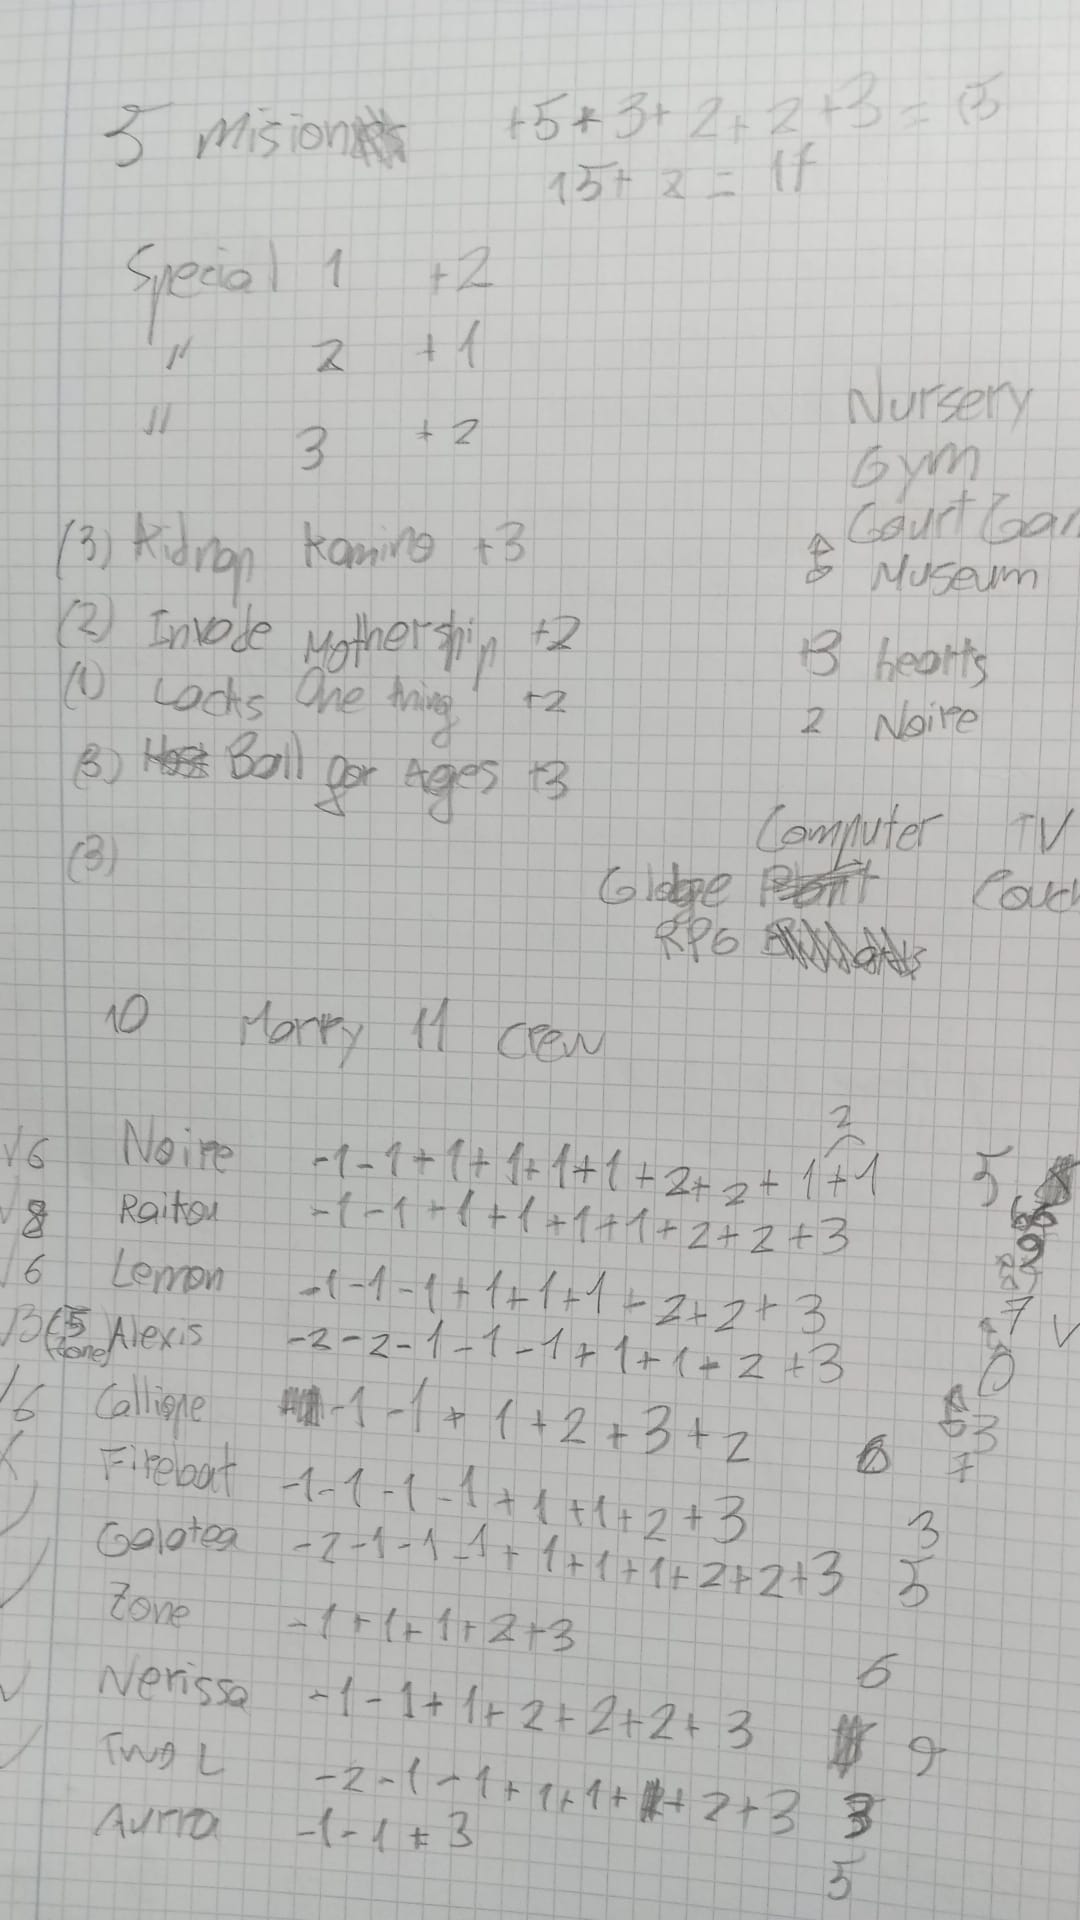 5 Mision
+5+3+2+2+3=15
15+2=17
Special 1 +2
" 2 +1
" 3 +2
Nursery
Gym
Court Gar
Museum
(3) Kidnap Kamino +3
(2) Invade Mothership +2
(1) Lacks One thing +2
(3) Ball for Ages +3
(3)
+3 hearts
2 Noire
Computer TV
Globe Couch
RPG
10 Marry 11 Crew
2
√6 Noire -1-1+1+1+1+1+2+2+1+1 5
√8 Raitou -1-1+1+1+1+1+2+2+3
√6 Lemon -1-1-1+1+1+1+2+2+3 7 √
√3 (5 Zone) Alexis -2-2-1-1-1+1+1+2+3 0
√6 Calliope -1-1+1+2+3+2 6 3
X Firebat -1-1-1-1+1+1+2+3 7
√ Galatea -2-1-1-1+1+1+1+2+2+3 3
√ Zone -1+1+1+2+3 5
√ Nerissa -1-1+1+2+2+2+3 6
√ Two L -2-1-1+1+1+2+3 9
Aurra -1-1+3 3
5